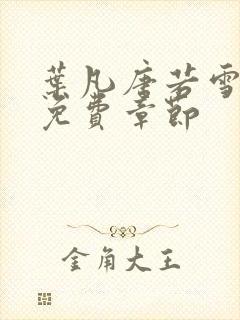 葉凡唐若雪
免費章節
金角大王